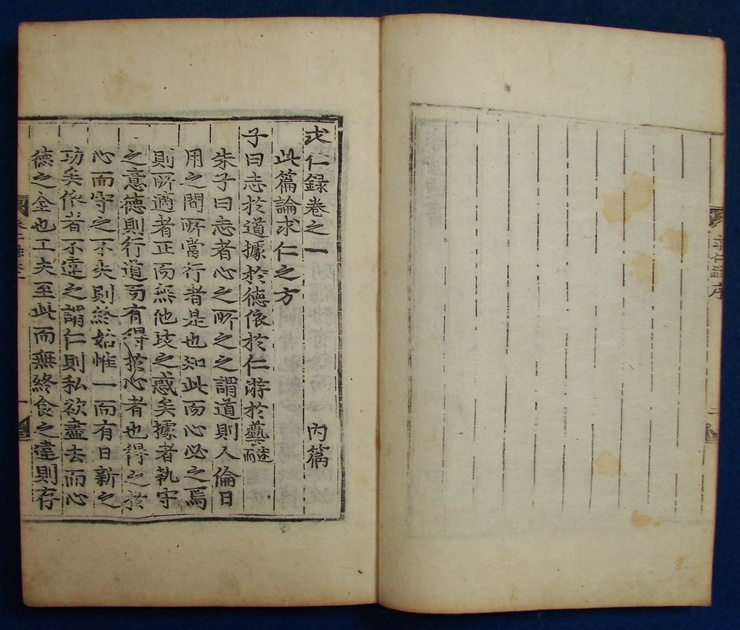 求仁録序
求仁録卷之一
此篇論求仁之方 內篇
子曰志於道據於德依於仁游於藝 述而
朱子曰志者心之所之之謂道則人倫日
用之間所當行者是也知此而心必之焉
則所適者正而無他歧之惑矣據者執守
之意德則行道而有得於心者也得之於
心而守之不失則終始惟一而有日新之
功矣依者不違之謂仁則私欲盡去而心
德之全也工夫至此而無終食之違則存